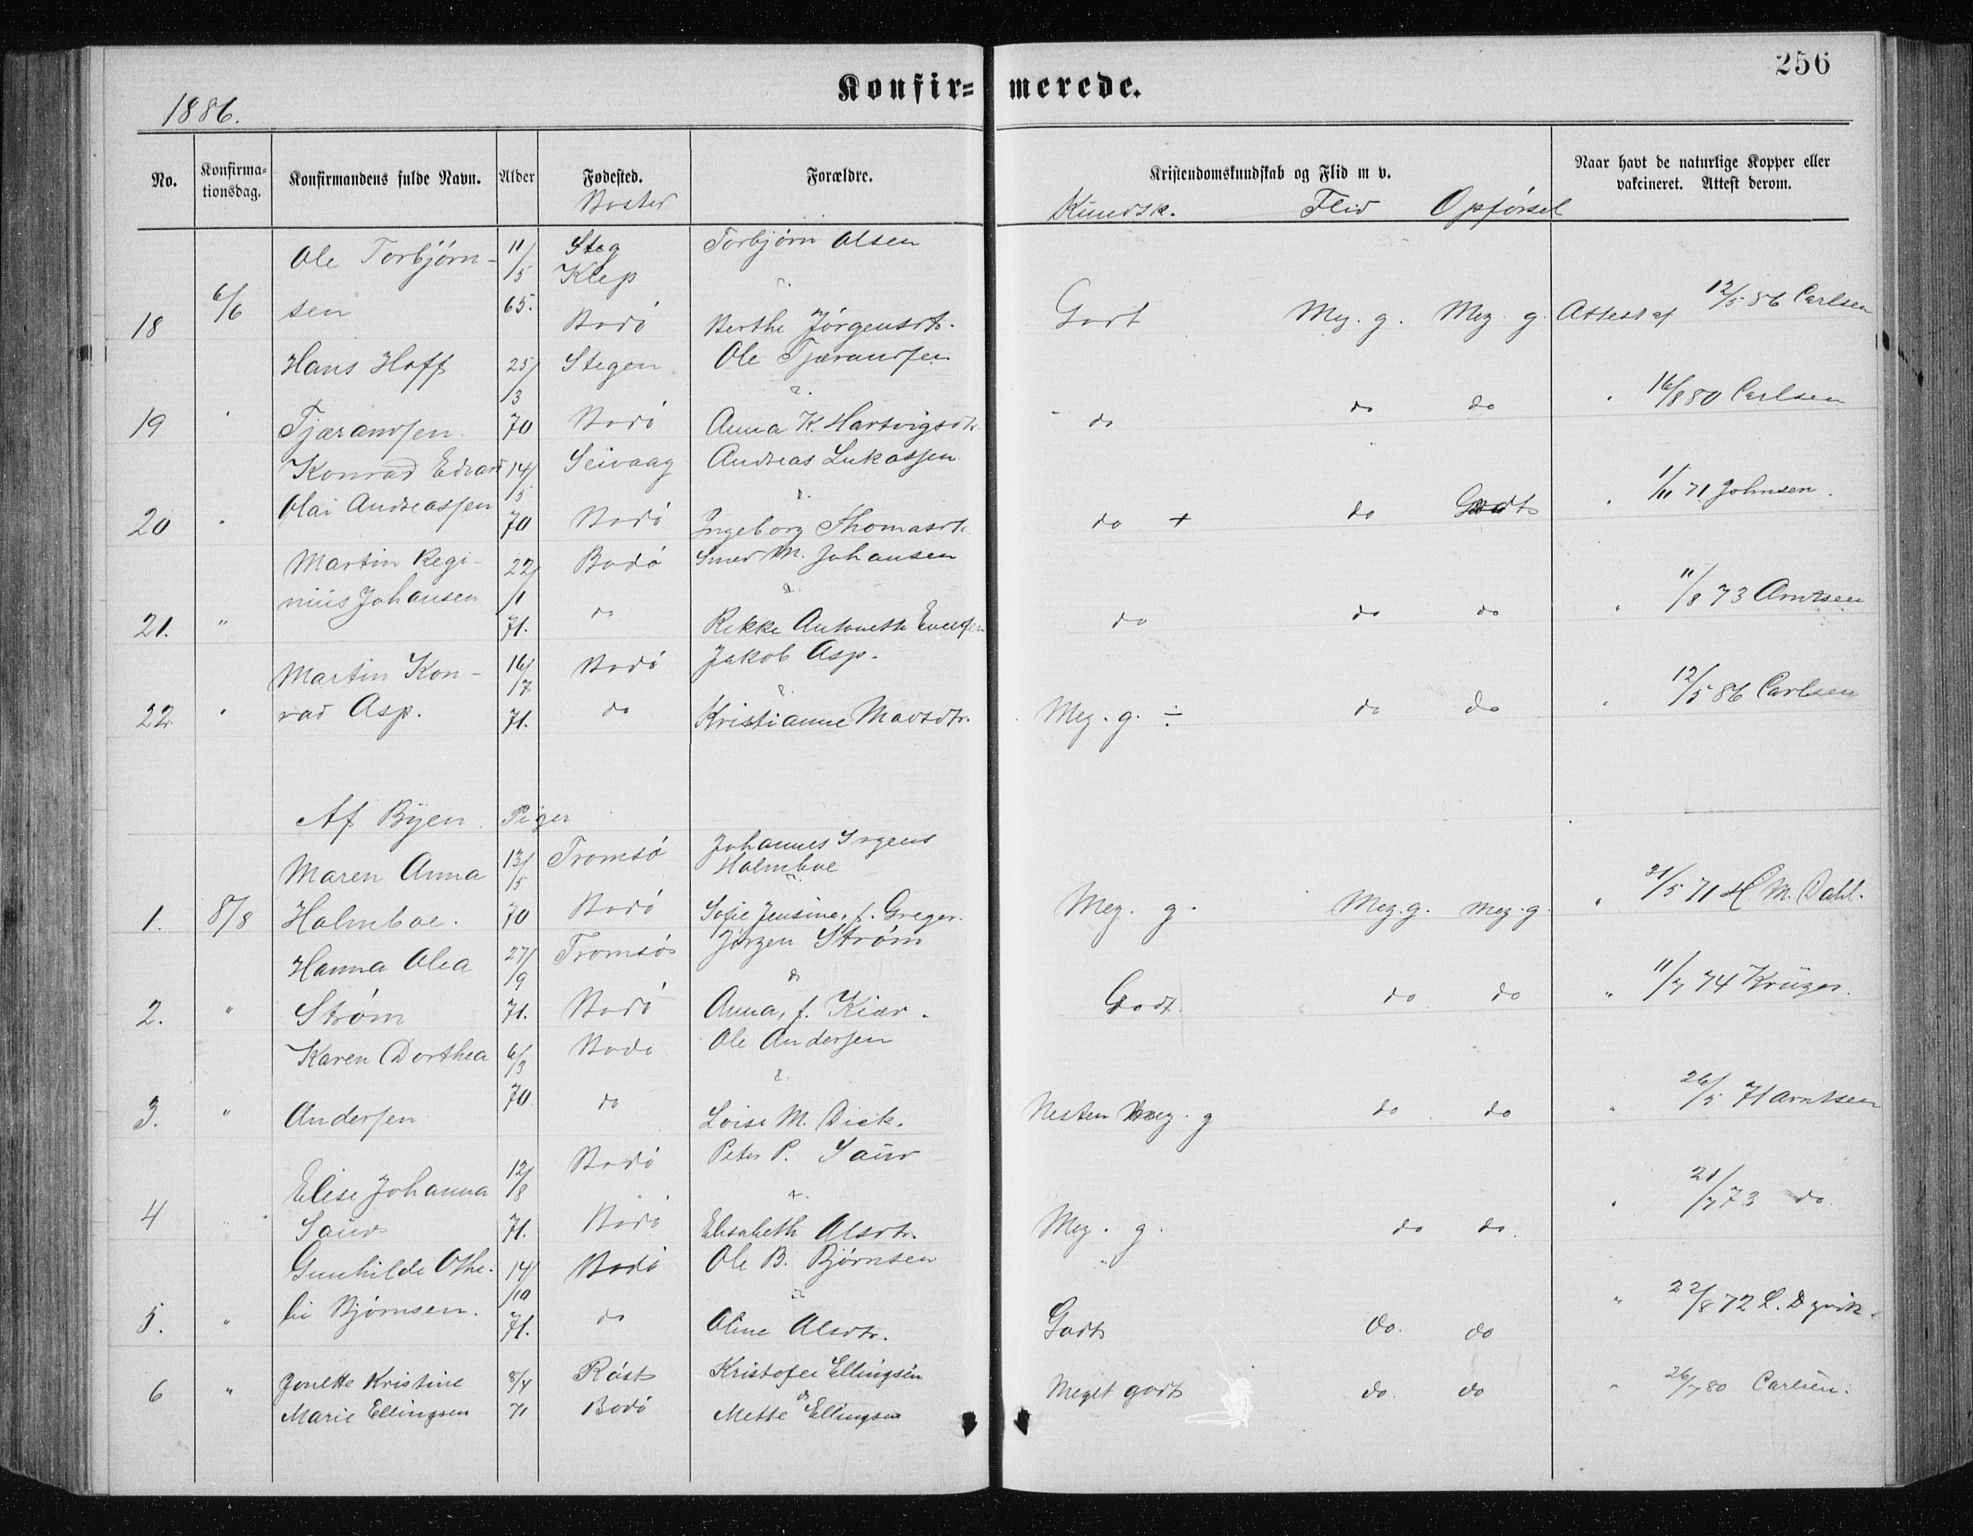 256
Konfir= merede.
1886.
No. Konfirma-tionsdag. Konfirmandens fulde Navn. Alder Fødested. Forældre. Kristendomskundskab og Flid m v. Naar havt de naturlige Kopper eller vakcineret. Attest derom.
Bosted Kundsk. Flid Opførsel
Ole Torbjørn- 11/5 Steg Torbjørn Olsen
Klep
18 6/6 sen 65. Bodö Berthe Jörgensdt. Godt Meg. g. Meg. g. Attest af 12/5 86 Carlsen
Hans Hoff 25/3 Stegen Ole Tjærandsen
19 " Tjærandsen 70 Bodö Anna K. Hartvigsdt. do do do " 16/8 80 Carlsen
Konrad Edvard 14/5 Seivaag Andreas Lukassen
20 " Olai Andreassen 70 Bodö Ingeborg Thomasdt. do + do Godt " 1/11 71 Johnsen.
Martin Regi- 22/1 Bodö Smed M. Johansen
nius Johansen do
21. " 71. Rikke Antonette do do do " 11/8 73 Arntsen
Martin Kon- 16/7 Bodö Jakob Asp.
22. " rad Asp. 71. do Kristianne Madsdtr. Meg. g. ÷ do do " 12/5 86 Carlsen
Af Byen. Piger
Maren Anna 13/5 Tromsö Johannes Irgens
Holmboe
1. 8/8 Holmboe. 70 Bodö Sofie Jensine, f. Greger. Meg. g. Meg. g. meg. g " 21/5 71 H. M. Dahl.
Hanna Olea 27/9 Tromsö Jörgen Ström
2. " Strøm 71. Bodö Anna, f. Kiær. Godt. do do " 11/7 74 Krüger.
Karen Dorthea 6/3 Bodö Ole Andersen
3. " Andersen 70. do Loise M. Dick. Nesten meg. g do do " 26/5 71 Arntsen
Elise Johanna 12/8 Bodö Peter P. Saur
4 " Saur 71. Bodö Elisabeth Olsdtr. Meg. g. do do. " 21/7 73 do
Gunhilde Othe- 14/10 Bodö Ole B. Bjørnsen
5. " lie Bjørnsen. 71. do Oline Olsdtr. Godt do. do " 22/8 72 L. Dyvik.
6 " Jonette Kristine 8/4 Röst Kristofer Ellingsen Meget godt do. do " 26/7 80 Carlsen.
Marie Ellingsen 71 Bodö Mette Ellingsen